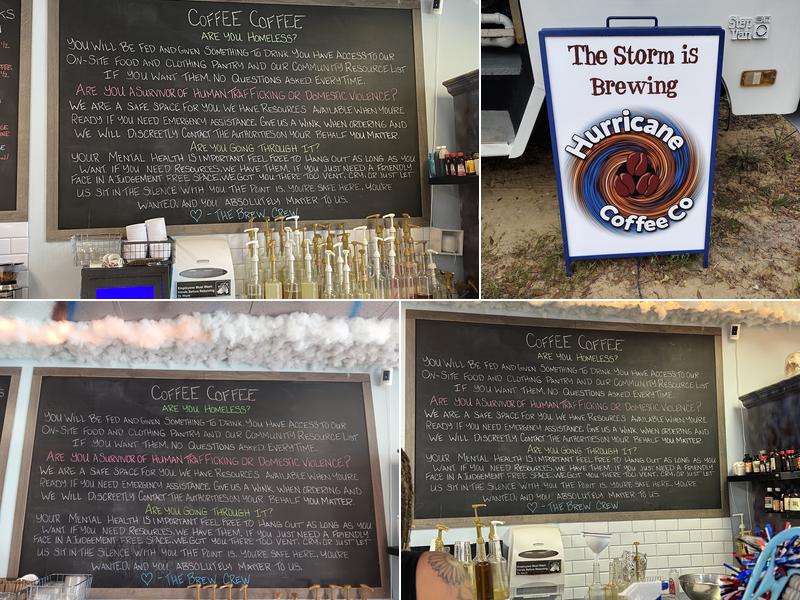 COFFEE COFFEE
ARE YOU HOMELESS?
YOU WILL BE FED AND GIVEN SOMETHING TO DRINK. YOU HAVE ACCESS TO OUR
ON-SITE FOOD AND CLOTHING PANTRY AND OUR COMMUNITY RESOURCE LIST
IF YOU WANT THEM, NO QUESTIONS ASKED EVERYTIME.
ARE YOU A SURVIVOR OF HUMAN TRAFFICKING OR DOMESTIC VIOLENCE?
WE ARE A SAFE SPACE FOR YOU. WE HAVE RESOURCES AVAILABLE WHEN YOU'RE
READY. IF YOU NEED EMERGENCY ASSISTANCE, GIVE US A WINK WHEN ORDERING AND
WE WILL DISCREETLY CONTACT THE AUTHORITIES ON YOUR BEHALF. YOU MATTER.
ARE YOU GOING THROUGH IT?
YOUR MENTAL HEALTH IS IMPORTANT. FEEL FREE TO HANG OUT AS LONG AS YOU
WANT. IF YOU NEED RESOURCES, WE HAVE THEM. IF YOU JUST NEED A FRIENDLY
FACE IN A JUDGEMENT FREE SPACE, WE GOT YOU THERE TOO. VENT, CRY, OR JUST LET
US SIT IN THE SILENCE WITH YOU. THE POINT IS, YOU'RE SAFE HERE, YOU'RE
WANTED, AND YOU ABSOLUTELY MATTER TO US.
♡ - THE BREW CREW
Employees Must Wash
Hands Before Returning
To Work
Step
Van
The Storm is
Brewing
Hurricane
Coffee Co
COFFEE COFFEE
ARE YOU HOMELESS?
YOU WILL BE FED AND GIVEN SOMETHING TO DRINK. YOU HAVE ACCESS TO OUR
ON-SITE FOOD AND CLOTHING PANTRY AND OUR COMMUNITY RESOURCE LIST
IF YOU WANT THEM, NO QUESTIONS ASKED EVERYTIME.
ARE YOU A SURVIVOR OF HUMAN TRAFFICKING OR DOMESTIC VIOLENCE?
WE ARE A SAFE SPACE FOR YOU. WE HAVE RESOURCES AVAILABLE WHEN YOU'RE
READY. IF YOU NEED EMERGENCY ASSISTANCE, GIVE US A WINK WHEN ORDERING AND
WE WILL DISCREETLY CONTACT THE AUTHORITIES ON YOUR BEHALF. YOU MATTER.
ARE YOU GOING THROUGH IT?
YOUR MENTAL HEALTH IS IMPORTANT. FEEL FREE TO HANG OUT AS LONG AS YOU
WANT. IF YOU NEED RESOURCES, WE HAVE THEM. IF YOU JUST NEED A FRIENDLY
FACE IN A JUDGEMENT FREE SPACE, WE GOT YOU THERE TOO. VENT, CRY, OR JUST LET
US SIT IN THE SILENCE WITH YOU. THE POINT IS, YOU'RE SAFE HERE, YOU'RE
WANTED, AND YOU ABSOLUTELY MATTER TO US.
♡ - THE BREW CREW
COFFEE COFFEE
ARE YOU HOMELESS?
YOU WILL BE FED AND GIVEN SOMETHING TO DRINK. YOU HAVE ACCESS TO OUR
ON-SITE FOOD AND CLOTHING PANTRY AND OUR COMMUNITY RESOURCE LIST
IF YOU WANT THEM, NO QUESTIONS ASKED EVERYTIME.
ARE YOU A SURVIVOR OF HUMAN TRAFFICKING OR DOMESTIC VIOLENCE?
WE ARE A SAFE SPACE FOR YOU. WE HAVE RESOURCES AVAILABLE WHEN YOU'RE
READY. IF YOU NEED EMERGENCY ASSISTANCE, GIVE US A WINK WHEN ORDERING AND
WE WILL DISCREETLY CONTACT THE AUTHORITIES ON YOUR BEHALF. YOU MATTER.
ARE YOU GOING THROUGH IT?
YOUR MENTAL HEALTH IS IMPORTANT. FEEL FREE TO HANG OUT AS LONG AS YOU
WANT. IF YOU NEED RESOURCES, WE HAVE THEM. IF YOU JUST NEED A FRIENDLY
FACE IN A JUDGEMENT FREE SPACE, WE GOT YOU THERE TOO. VENT, CRY, OR JUST LET
US SIT IN THE SILENCE WITH YOU. THE POINT IS, YOU'RE SAFE HERE, YOU'RE
WANTED, AND YOU ABSOLUTELY MATTER TO US.
♡ - THE BREW CREW